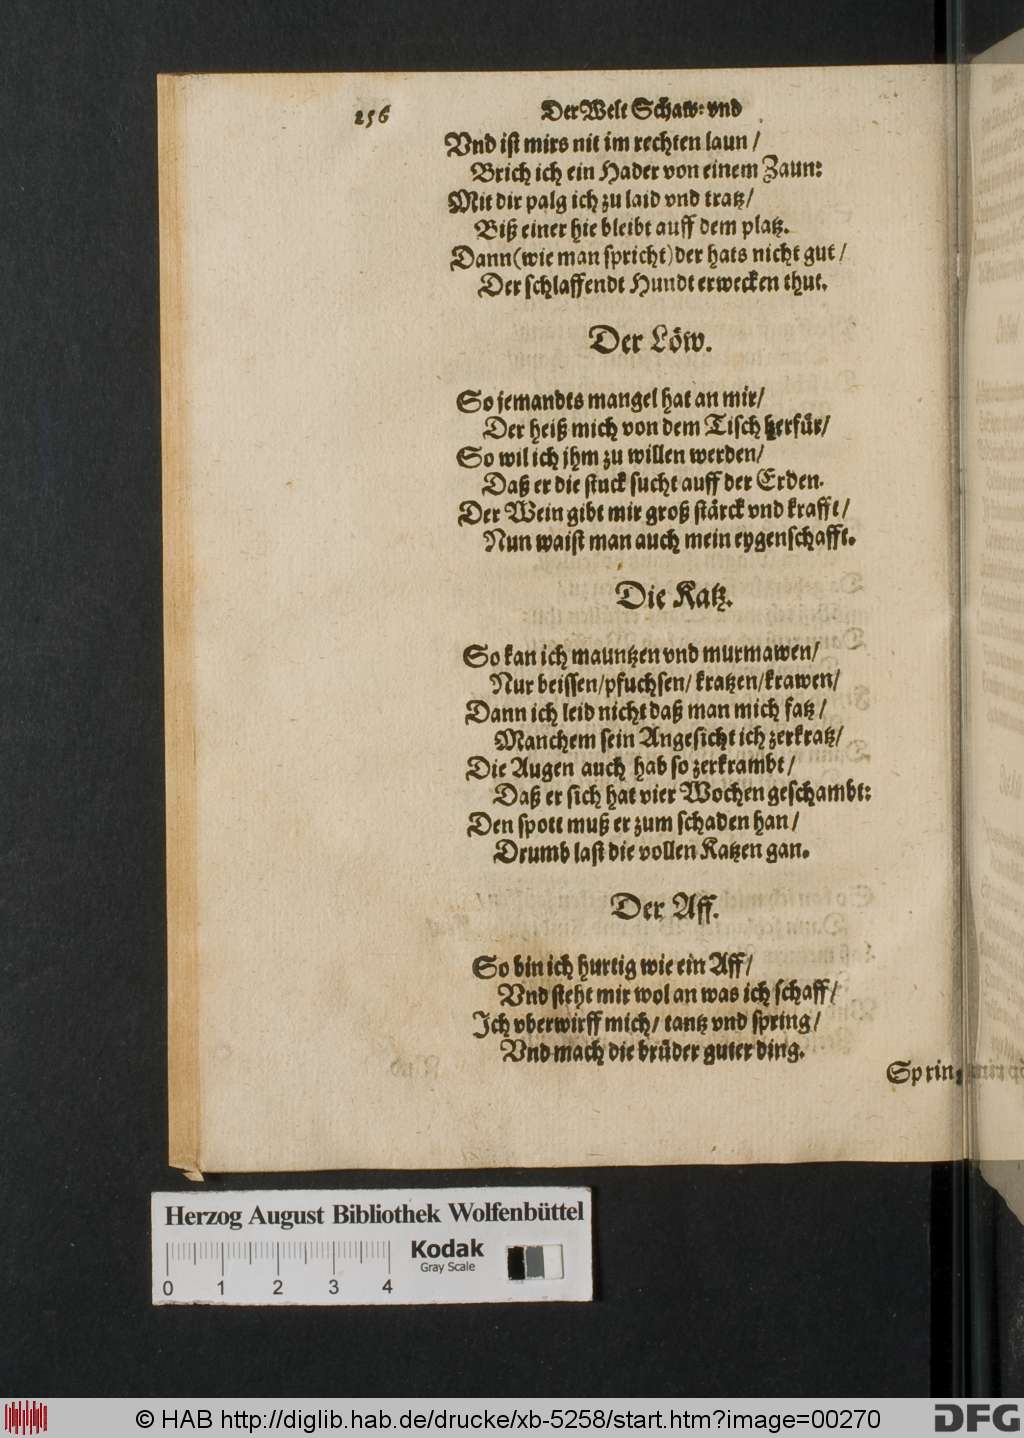 256 Der Welt Schaw: vnd
Vnd ist mirs nit im rechten laun /
Brich ich ein Hader von einem Zaun:
Mit dir palg ich zu laid vnd tratz /
Biß einer hie bleibt auff dem platz.
Dann (wie man spricht) der hats nicht gut /
Der schlaffendt Hundt erwecken thut.
Der Löw.
So jemandts mangel hat an mir /
Der heiß mich von dem Tisch herfür /
So wil ich jhm zu willen werden /
Daß er die stuck sucht auff der Erden.
Der Wein gibt mir groß stärck vnd krafft /
Nun waist man auch mein eygenschafft.
Die Katz.
So kan ich mauntzen vnd murmawen /
Nur beissen / pfuchsen / kratzen / krawen /
Dann ich leid nicht daß man mich fatz /
Manchem sein Angesicht ich zerkratz /
Die Augen auch hab so zerkrambt /
Daß er sich hat vier Wochen geschambt:
Den spott muß er zum schaden han /
Drumb last die vollen Katzen gan.
Der Aff.
So bin ich hurtig wie ein Aff /
Vnd steht mir wol an was ich schaff /
Ich vberwirff mich / tantz vnd spring /
Vnd mach die brüder guter ding.
Sprin,
Herzog August Bibliothek Wolfenbüttel
Kodak
Gray Scale
0 1 2 3 4
© HAB http://diglib.hab.de/drucke/xb-5258/start.htm?image=00270
DFG